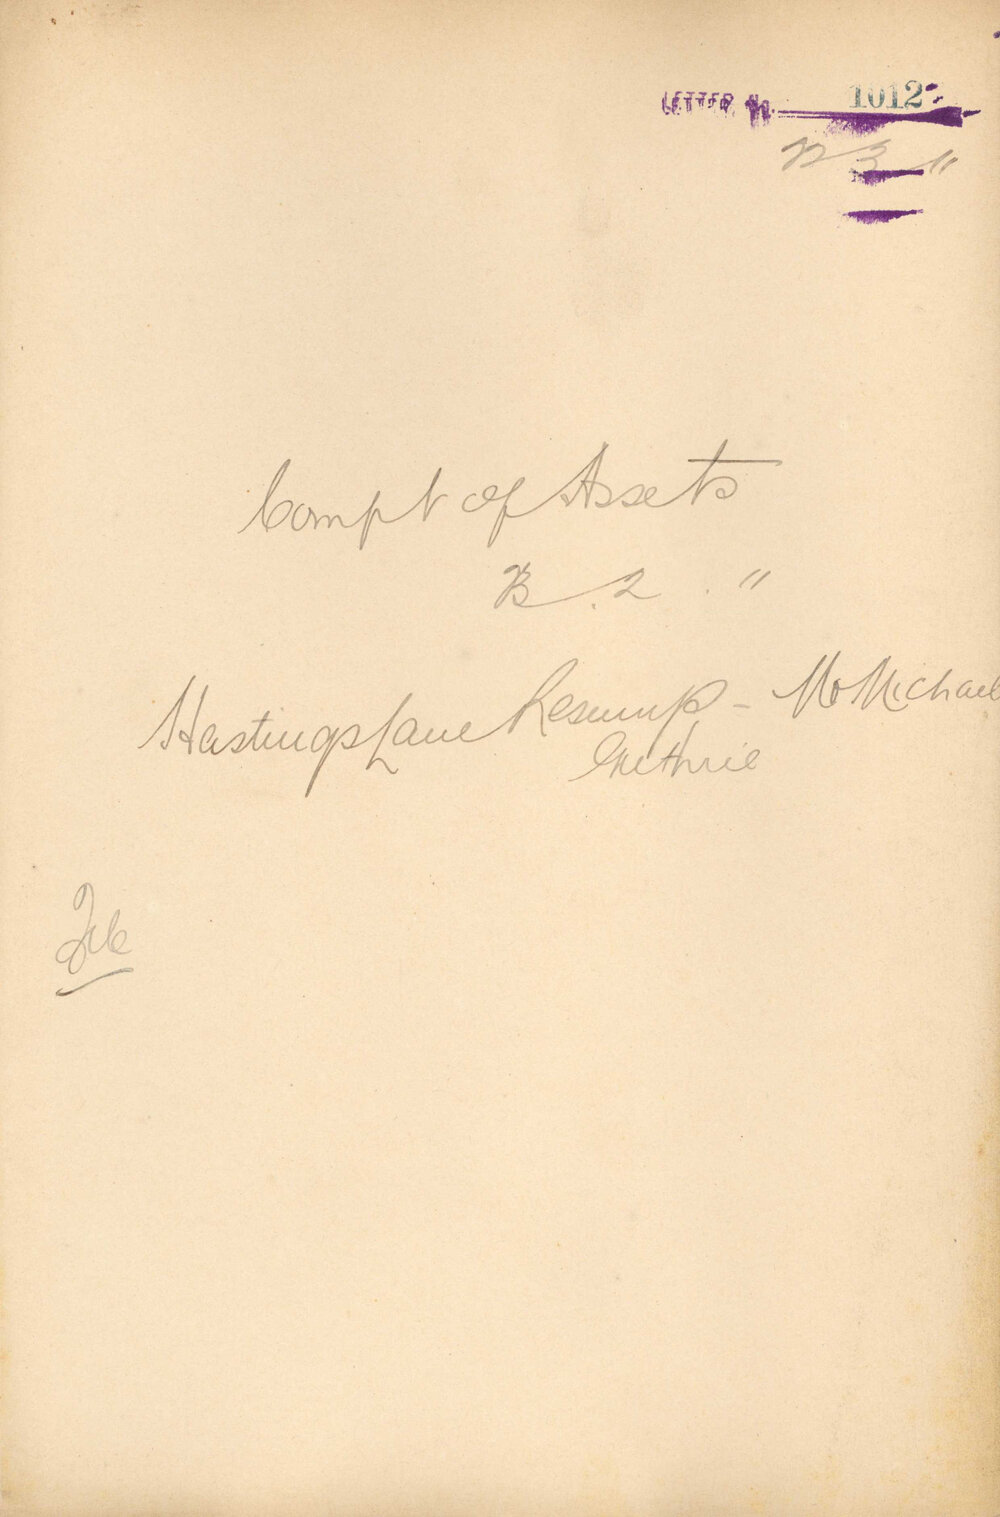 LETTER No. 1012
B 3 "
Compt of Assets
B. 2. "
Hastings Lane Resump - McMichael
Guthrie
File